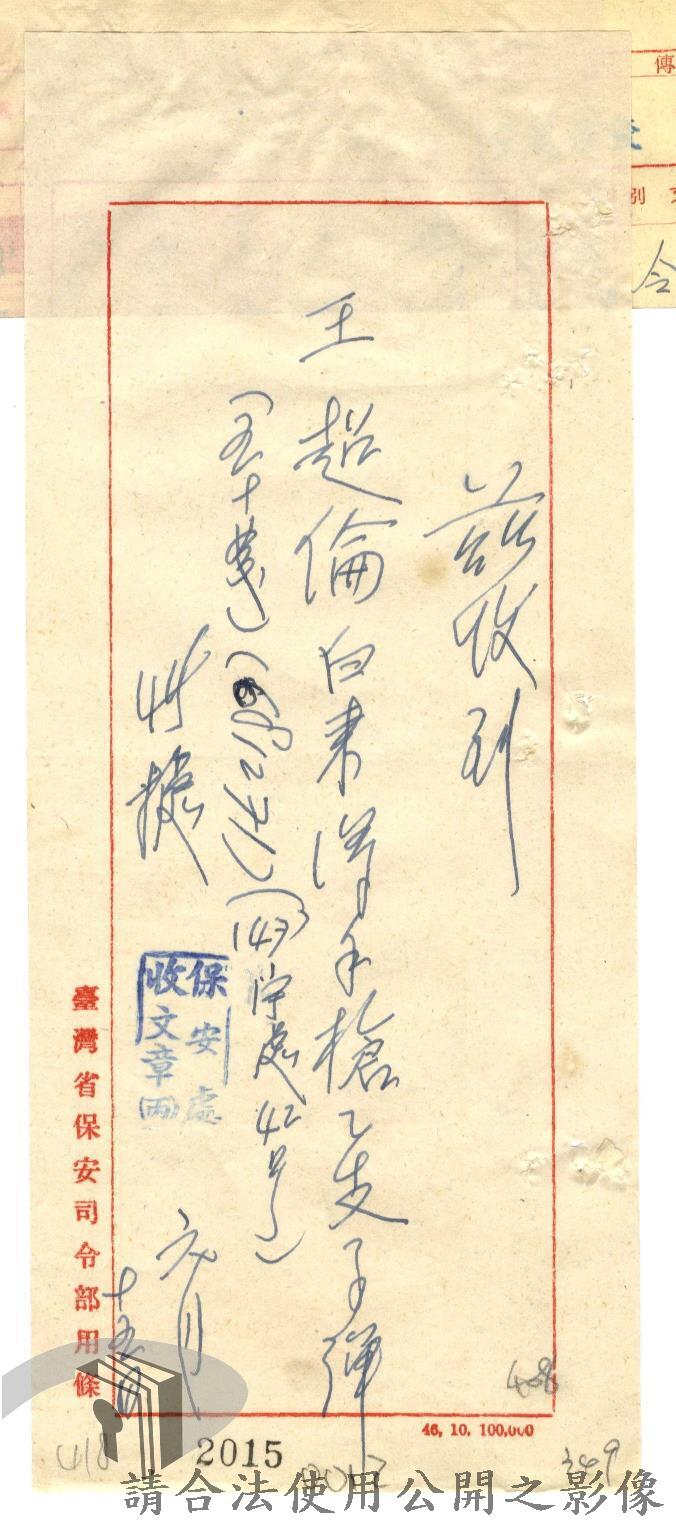 茲收到
王超倫白東洋手槍乙支子彈
(五十發)(681271)(1493倖處42号)
此據
保安處
收文章
六月
十五日
臺灣省保安司令部用條
46, 10, 100,000
408
418
2015
349
傳
別 文
令
請合法使用公開之影像